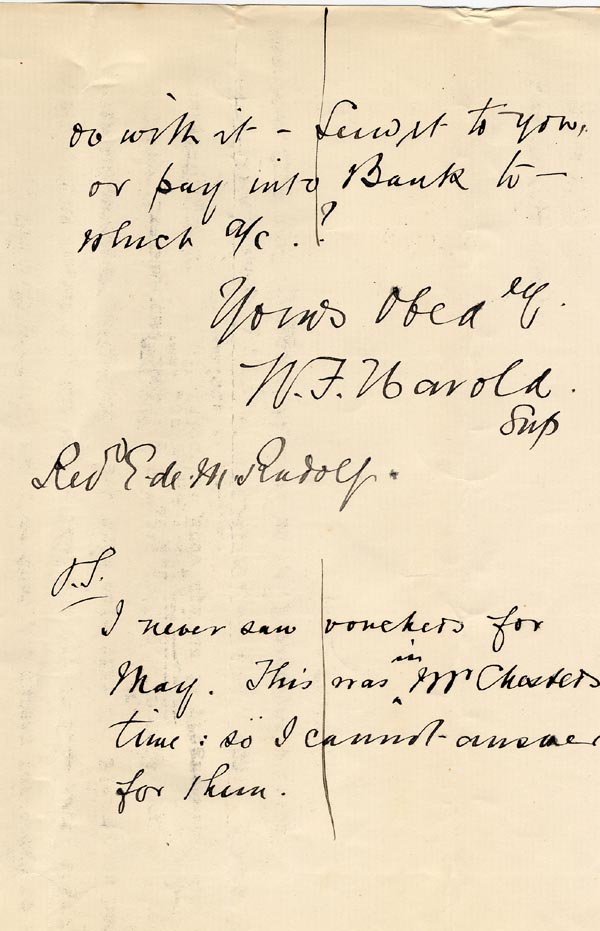 do with it - Send it to you,
or pay into Bank to -
which a/c . ?
Yours Obedly.
W. F. Harold.
Sup
Revd E. de M. Rudolf.
P.S.
I never saw vouchers for
May. This was in Mr Chesters
time: so I cannot answer
for them.